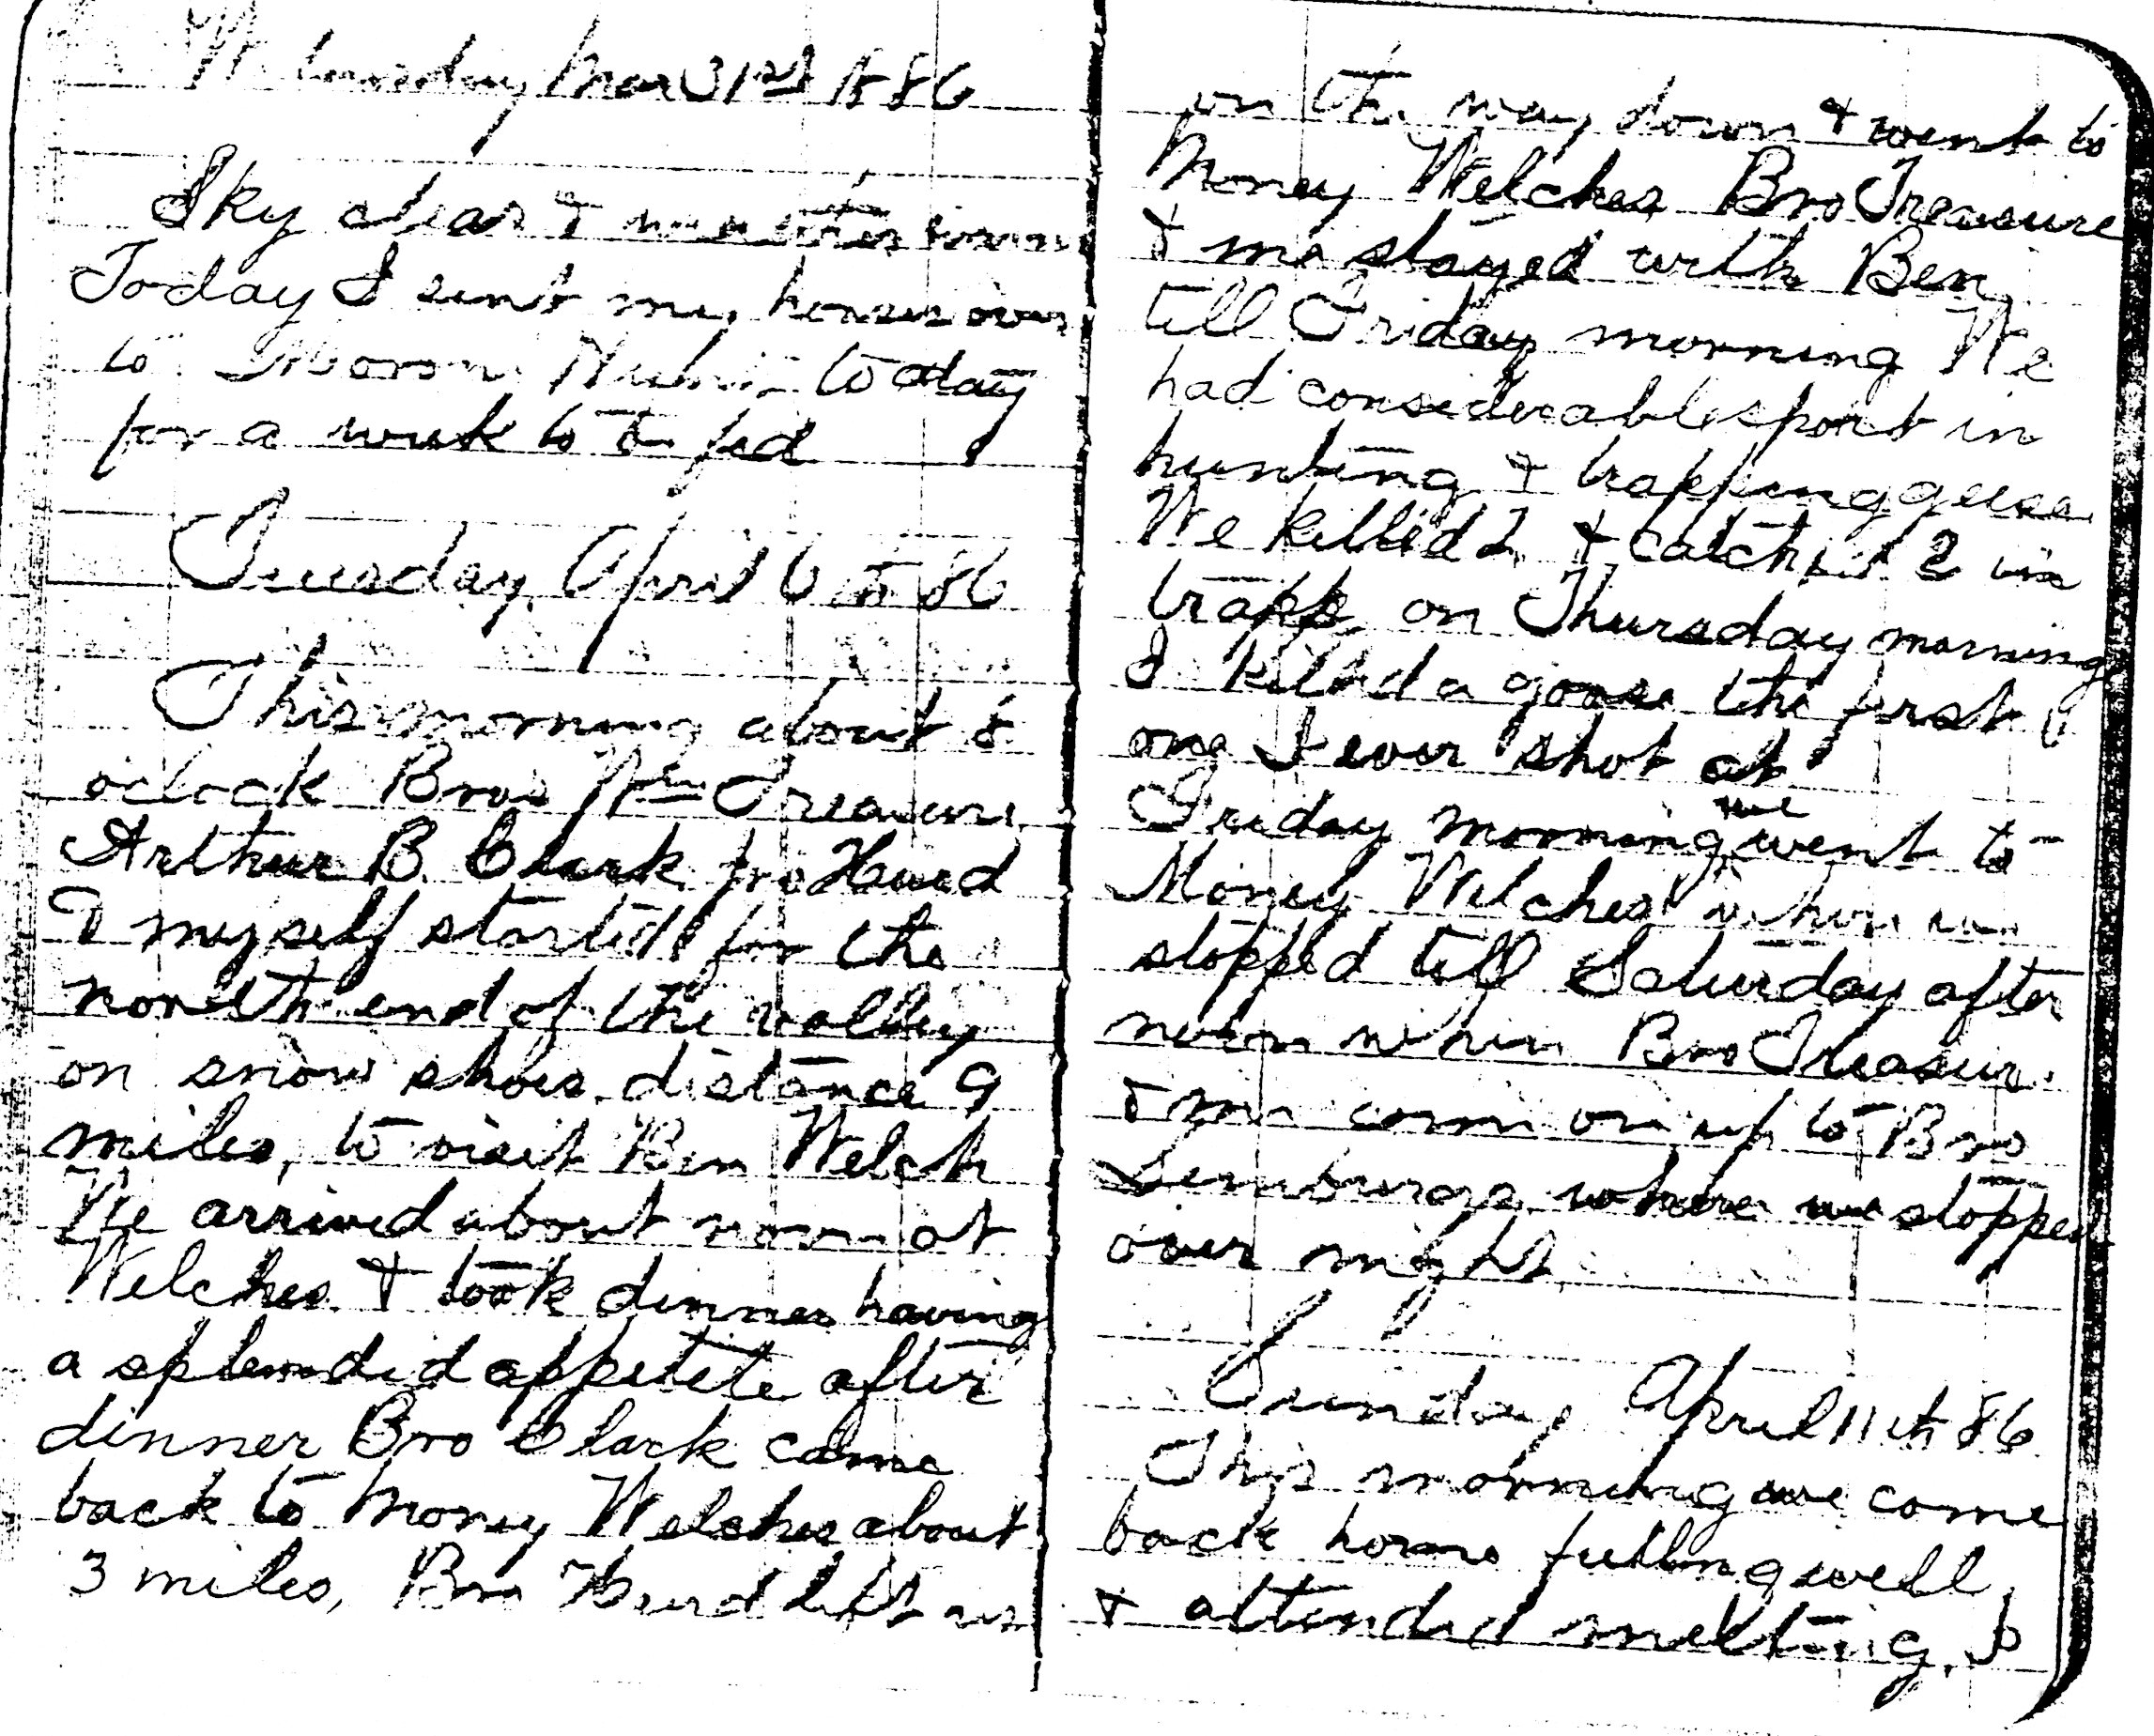 Wednesday Mar 31st 1886
Sky clear & weather warm
Today I sent my horses over
to today
for a week to be fed
Tuesday April 6th 86
This morning about 8
oclock Bros Wm Treasure
Arthur B. Clark Hurd
& myself started for the
north end of the valley
on snow shoes distance 9
miles, to visit Ben Welch
We arrived about noon at
Welches & took dinner having
a splendid appetite after
dinner Bro Clark come
back to Money Welches about
3 miles, Bro Hurd left us
on the way down & went to
Money Welches Bro Treasure
& me stayed with Ben
till Friday morning We
had considerable sport in
hunting & trapping geese
We killed 2 & catched 2 in
trapp on Thursday morning
I killed a goose the first
one I ever shot at
Friday morning we went to
Money Welches where we
stopped till Saturday after
noon when Bro Treasure
& me come on up to Bro
where we stopped
over night
Sunday April 11th 86
This morning we come
back home feeling well
& attended meeting.